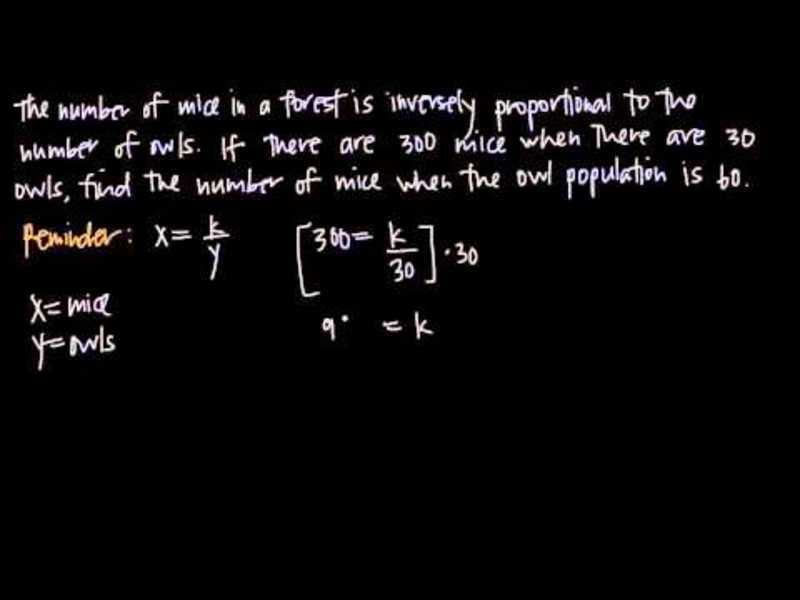 The number of mice in a forest is inversely proportional to the
number of owls. If there are 300 mice when there are 30
owls, find the number of mice when the owl population is 60.
Reminder: x = k/y [300 = k/30] · 30
x = mice
y = owls 9· = k